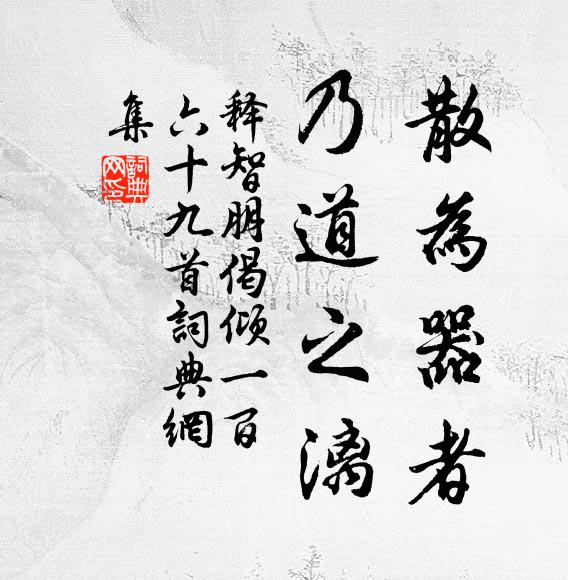 散為器者
乃道之漓
释智朋偈倾一百
六十九首詞典網
集
詞典网印